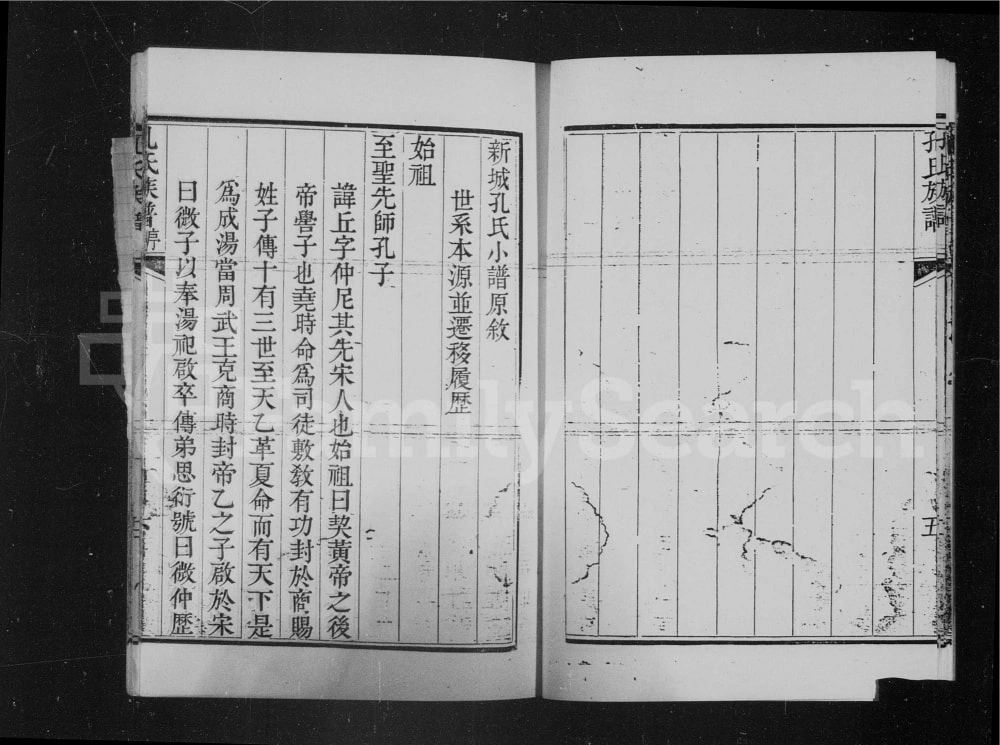 孔氏族譜
五
新城孔氏小譜原敘
世系本源並遷移履歷
始祖
至聖先師孔子
諱丘字仲尼其先宋人也始祖曰契黃帝之後
帝嚳子也堯時命爲司徒敷敎有功封於商賜
姓子傳十有三世至天乙革夏命而有天下是
爲成湯當周武王克商時封帝乙之子啟於宋
曰微子以奉湯祀啟卒傳弟思衍號曰微仲歷
孔氏族譜
FamilySearch